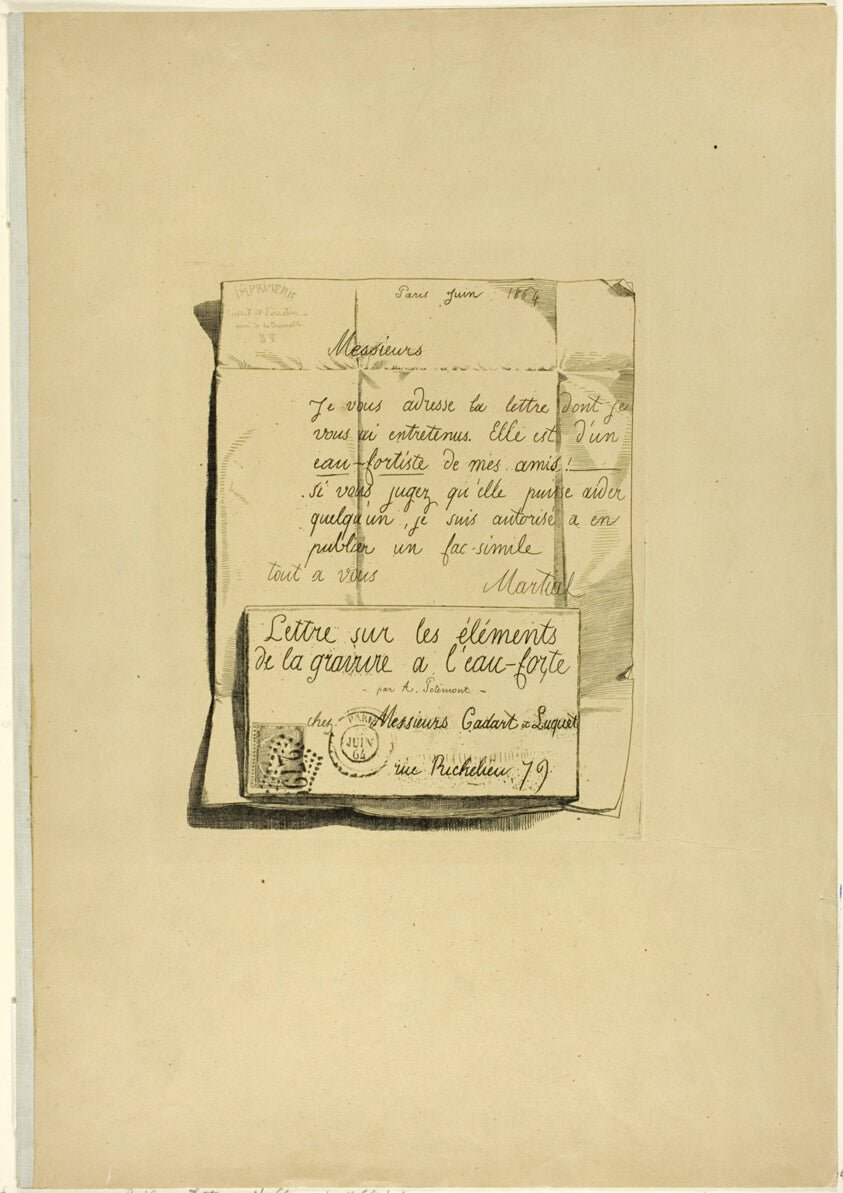 IMPRIMERIE
38
Paris Juin 1864
Messieurs
Je vous adresse la lettre dont je
vous ai entretenus. Elle est d'un
eau-fortiste de mes amis!
Si vous jugez qu'elle puisse aider
quelqu'un, je suis autorisé a en
publier un fac-simile
tout a vous Martial
Lettre sur les éléments
de la gravure a l'eau-forte
- par A. Potémont -
chez Messieurs Cadart & Luquet
PARIS
JUIN
64
rue Richelieu, 79